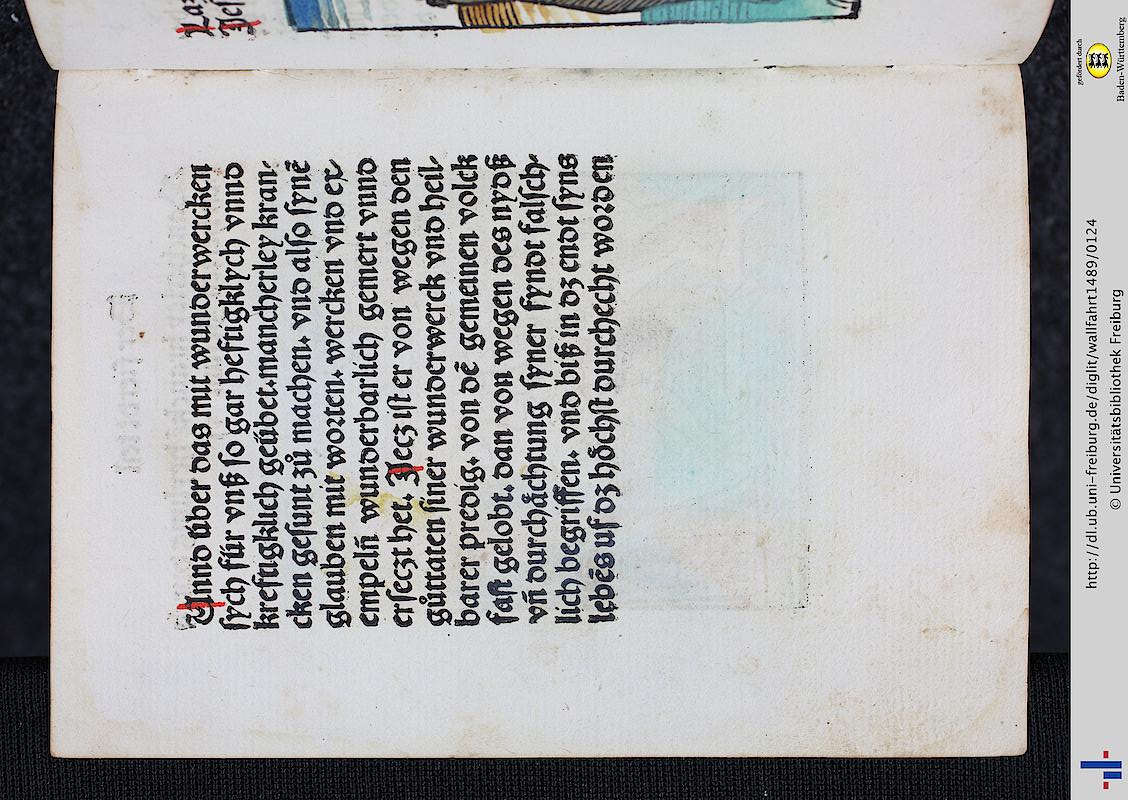 Unnd über das mit wunderwercken
sych für vnß so gar hefftigklych vnnd
krefftigklich geübet. mancherley kran⸗
cken gesunt zů machen. vnd also synē
glauben mit worten. wercken vnd ex⸗
empelñ wunderbarlich gemert vnnd
erseczt het. Jecz ist er von wegen den
gůttaten siner wunderwerck vnd heil⸗
barer predig. von dē gemeinen volck
fast gelobt. dan von wegen des nydß
vñ durchåchtung syner fyndt falsch⸗
lich begriffen. vnd biß in dz endt syns
lebēs uf dz hôchst durchecht worden
gefördert durch
Baden-Württemberg
http://dl.ub.uni-freiburg.de/diglit/wallfahrt1489/0124
© Universitätsbibliothek Freiburg